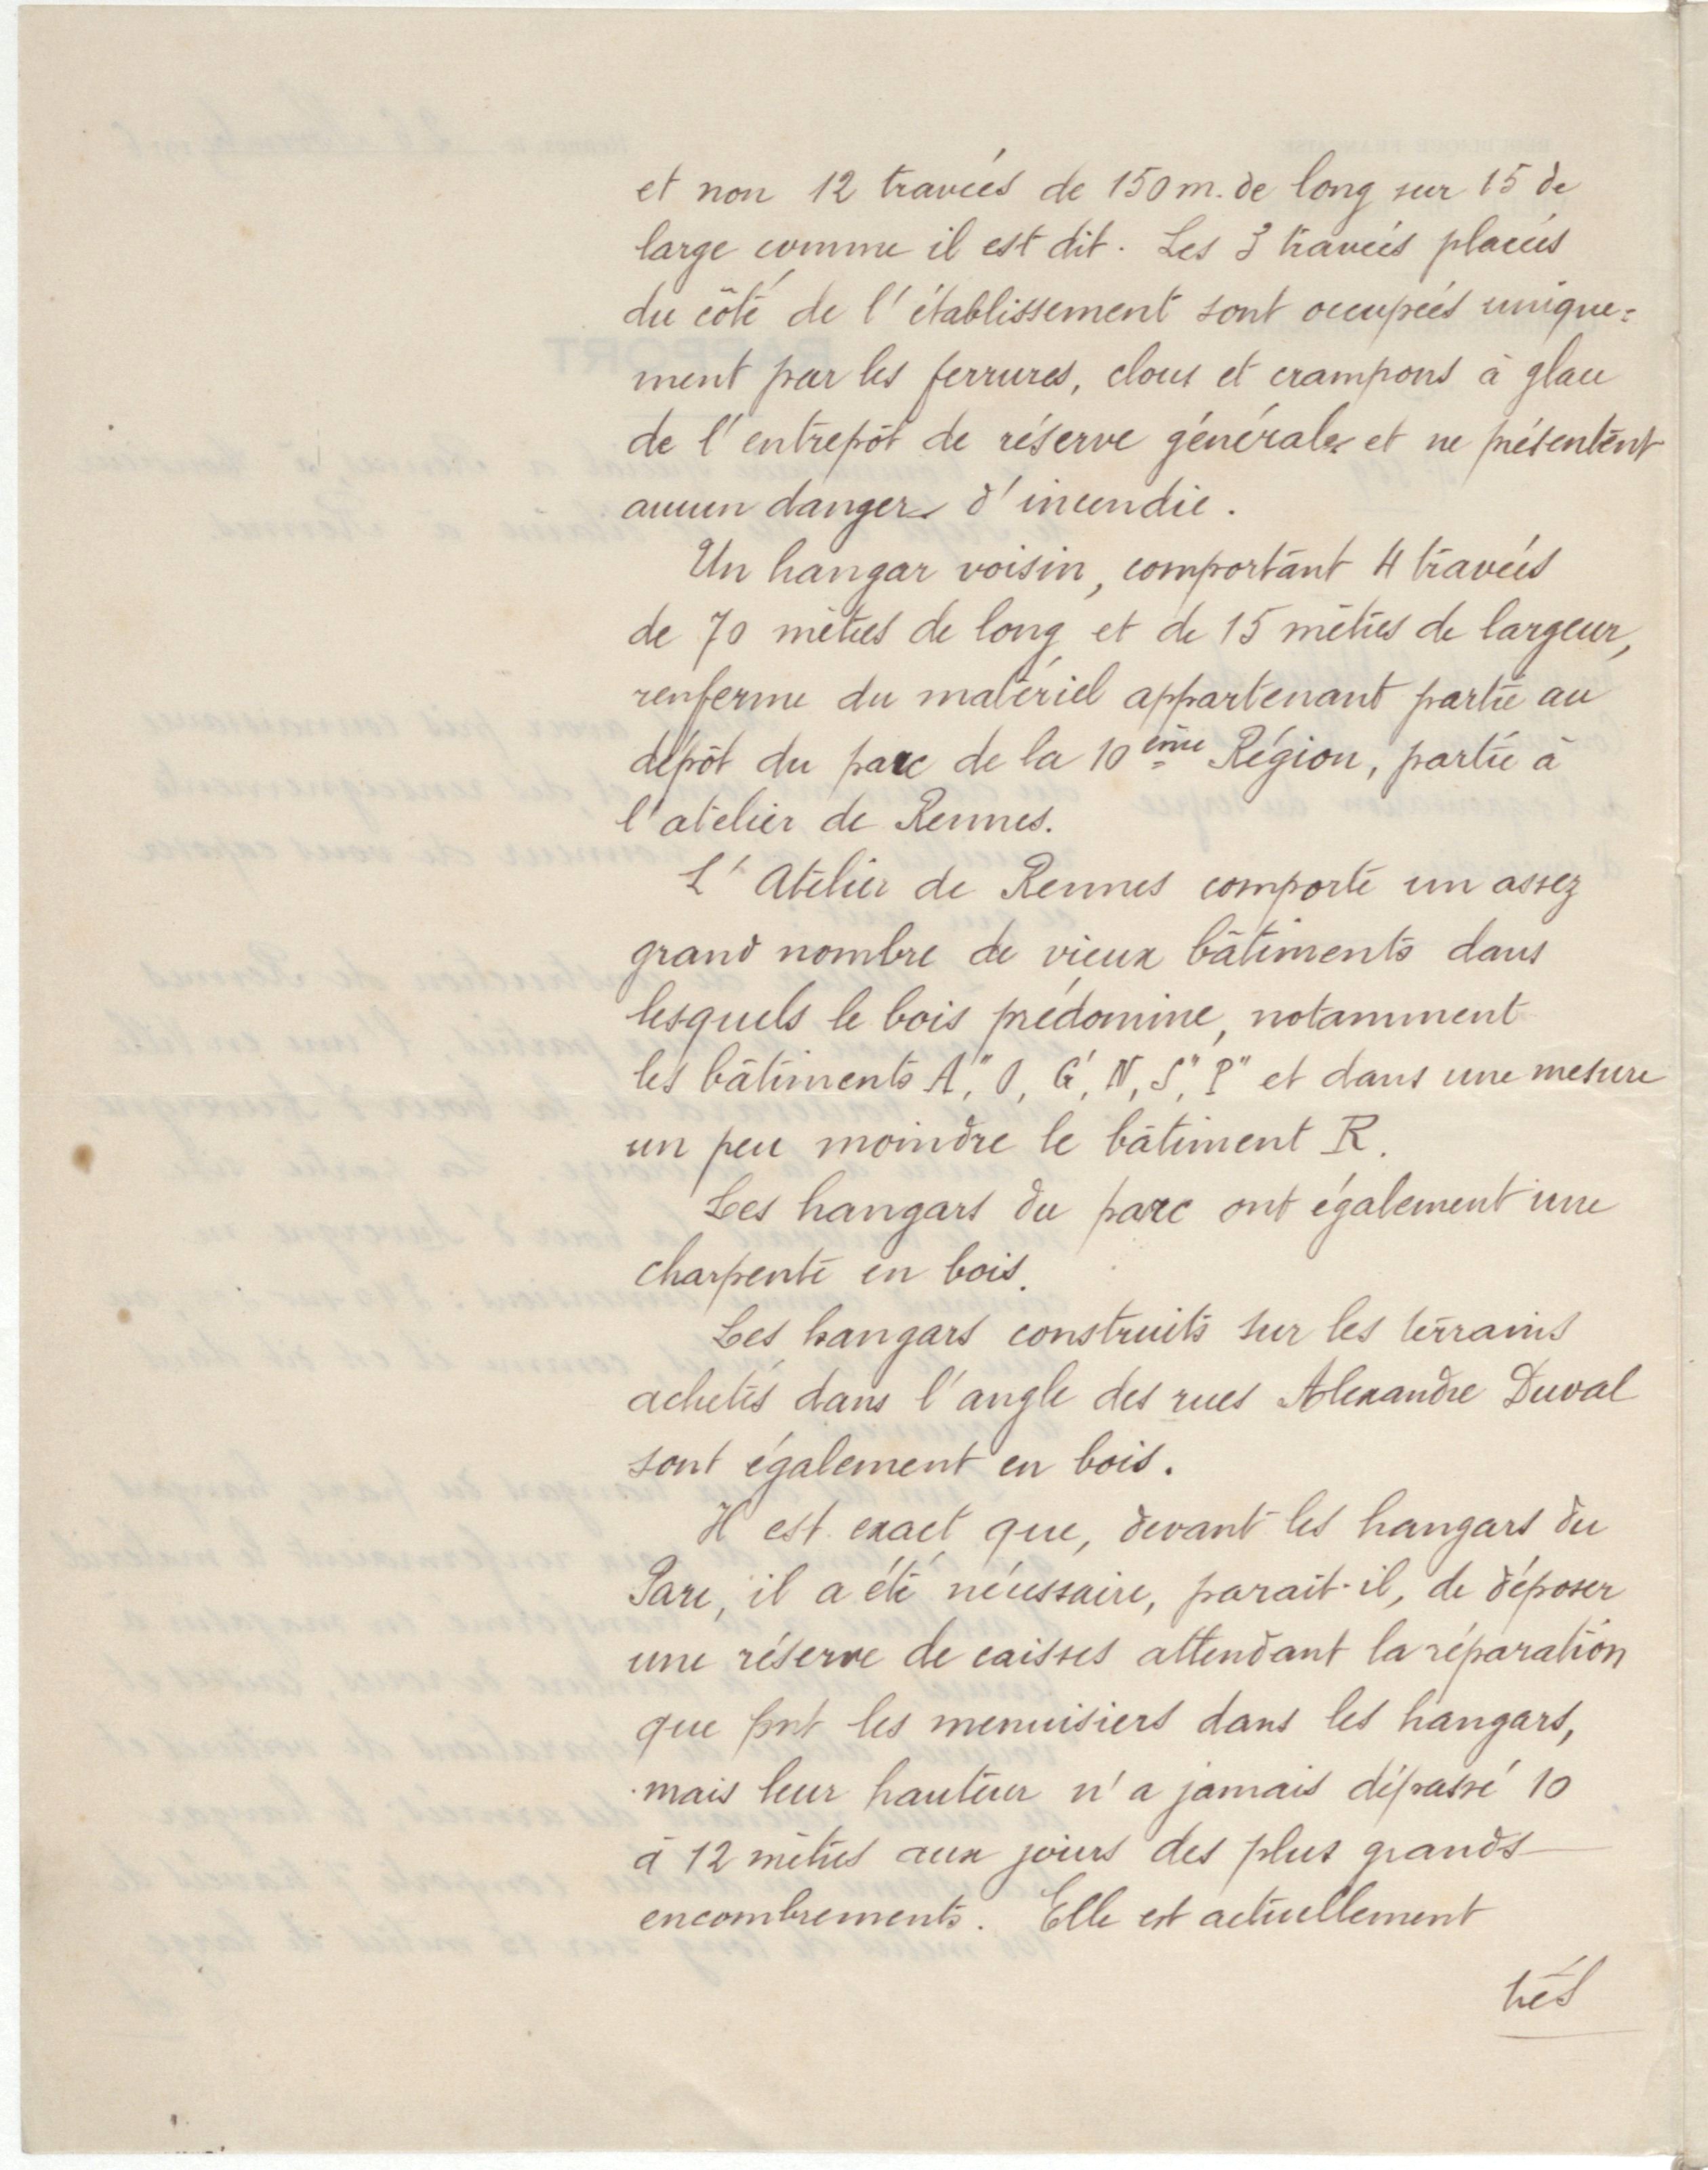 et non 12 travées de 150 m. de long sur 15 de
large comme il est dit. Les 3 travées placées
du côté de l'établissement sont occupées unique=
ment par les ferrures, clous et crampons à glace
de l'entrepôt de réserve générale et ne présentent
aucun danger d'incendie.
Un hangar voisin, comportant 4 travées
de 70 mètres de long et de 15 mètres de largeur,
renferme du matériel appartenant partie au
dépôt du parc de la 10ème Région, partie à
l'atelier de Rennes.
L'Atelier de Rennes comporte un assez
grand nombre de vieux bâtiments dans
lesquels le bois prédomine, notamment
les bâtiments A", O, G', N, S", P" et dans une mesure
un peu moindre le bâtiment R.
Les hangars du parc ont également une
charpente en bois.
Les hangars construits sur les terrains
achetés dans l'angle des rues Alexandre Duval
sont également en bois.
Il est exact que, devant les hangars du
Parc, il a été nécessaire, parait-il, de déposer
une réserve de caisses attendant la réparation
que font les menuisiers dans les hangars,
mais leur hauteur n'a jamais dépassé 10
à 12 mètres aux jours des plus grands
encombrements. Elle est actuellement
très